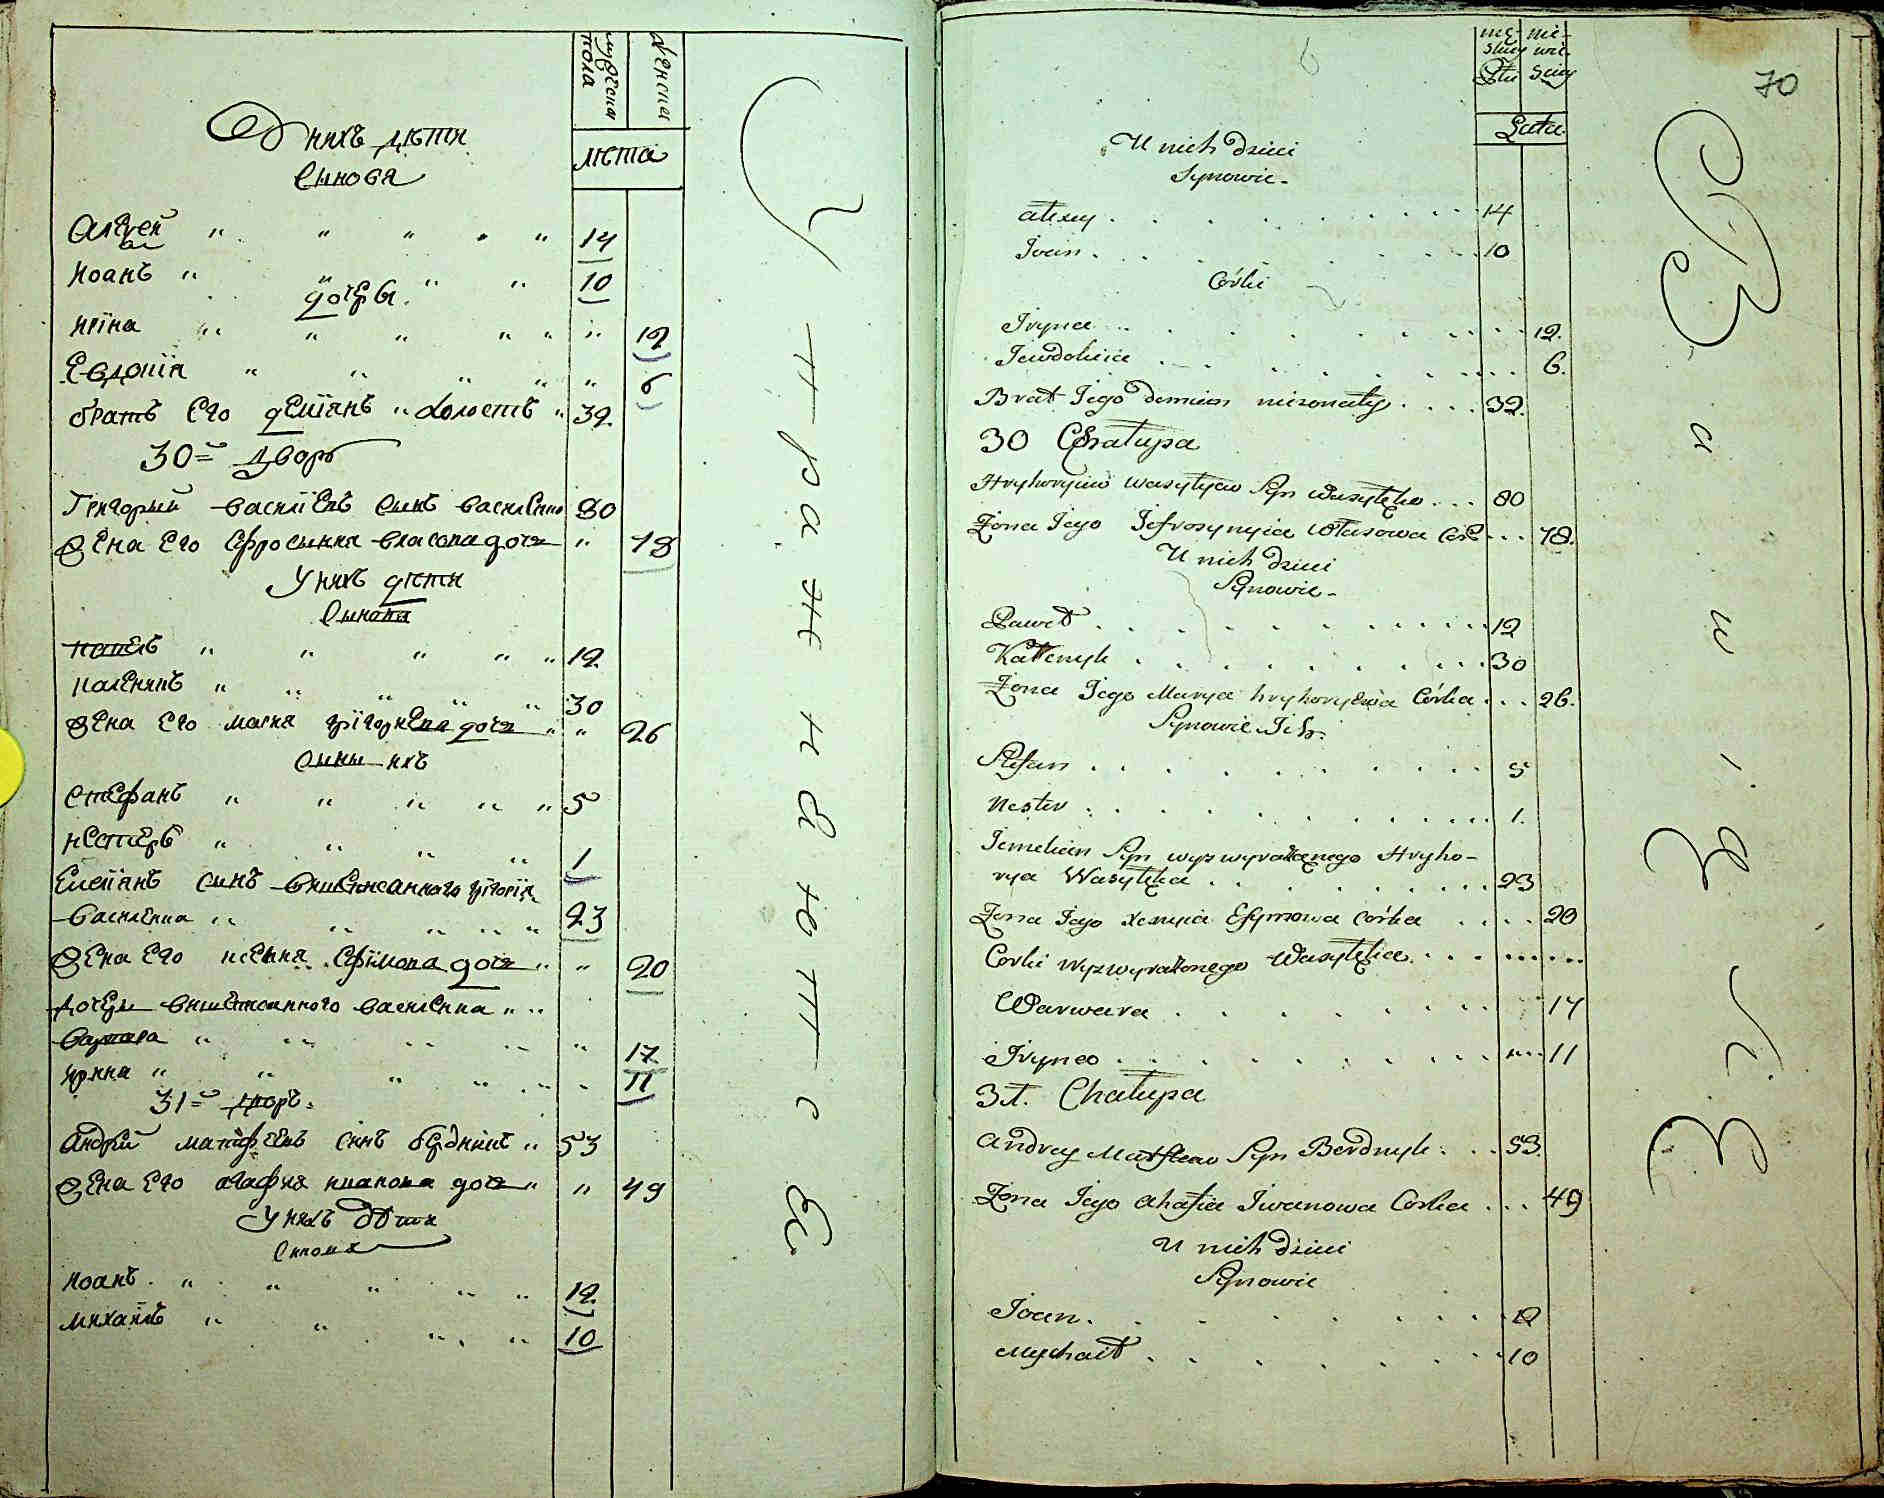 мужеска пола
женска
лѣта
У нихъ дѣти
Сынове
Алексей " " " " " 14
Иоанъ " " " " 10
дочери.
Ирина " " " " " " 12
Евдокіа " " " " " 6
братъ Его деміанъ " холостъ " 32.
30= дворъ
Григорый василіевъ сынъ василенко 80
Жена Его Ефросиния власова дочь " 78
У нихъ дети
Сынова
павелъ " " " " " 12.
каленикъ " " " " " 30
Жена Его мария григориева дочь " " 26
Сыны ихъ
стефанъ " " " " " 5
нестеръ " " " " 1
Емеліанъ сынъ вишеписанного григорія
василенка " " " " " 23
Жена Его ксения Ефимова дочь " " 20
дочеры вишеписанного василенка " "
варвара " " " " " 17.
Ирина " " " " " " 11
31= дворъ.
Андрей матфеевъ синъ бердникъ " 53
Жена Его агафия иванова дочь " " 49
У нихъ дѣти
Синове
Иоанъ. " " " " " 12.
михаилъ " " " " 10
У
п
р
а
ж
н
я
ю
т
с
Ѣ
męskiey Płci
niewieściey
70
Lata
U nich dzieci
Synowie -
Alexey . . . . . . . . 14
Joan . . . . . . . 10
Córki
Iryna . . . . . . . . . 12.
Jewdokiia . . . . . . . . 6.
Brat Jego demian nieżonaty . . . . 32.
30 Chałupa
Hryhoryiw Wasylyiw Syn Wasyłeko . . . 80
Żona Jego Jefrosynyia Własowa Cór . . . 78.
U nich dzieci
Synowie -
Paweł . . . . . . . . . . 12
Kałenyk . . . . . . . . . 30
Żona Jego Marya hryhoryewa Córka . . . 26.
Synowie Ich.
Stefan . . . . . . . . . 5
Nester . . . . . . . . . . 1.
Jemelian Syn wyżwyrażanego Hryho-
rya Wasyłeka . . . . . . . 23
Żona Jego Xenyia Efymowa Córka . . . . 20
Corki wyzwyrażonego Wasyłeka . . . . . . . . .
Warwara . . . . . . . . 17
Iryna . . . . . . . . . 11
31. Chałupa
Andrey Matfeew Syn Berdnyk . . . 53.
Żona Jego ahafia Iwanowa Corka . . . 49
U nich dzieci
Synowie
Joan. . . . . . . . . 12
Mychaił . . . . . . . . 10